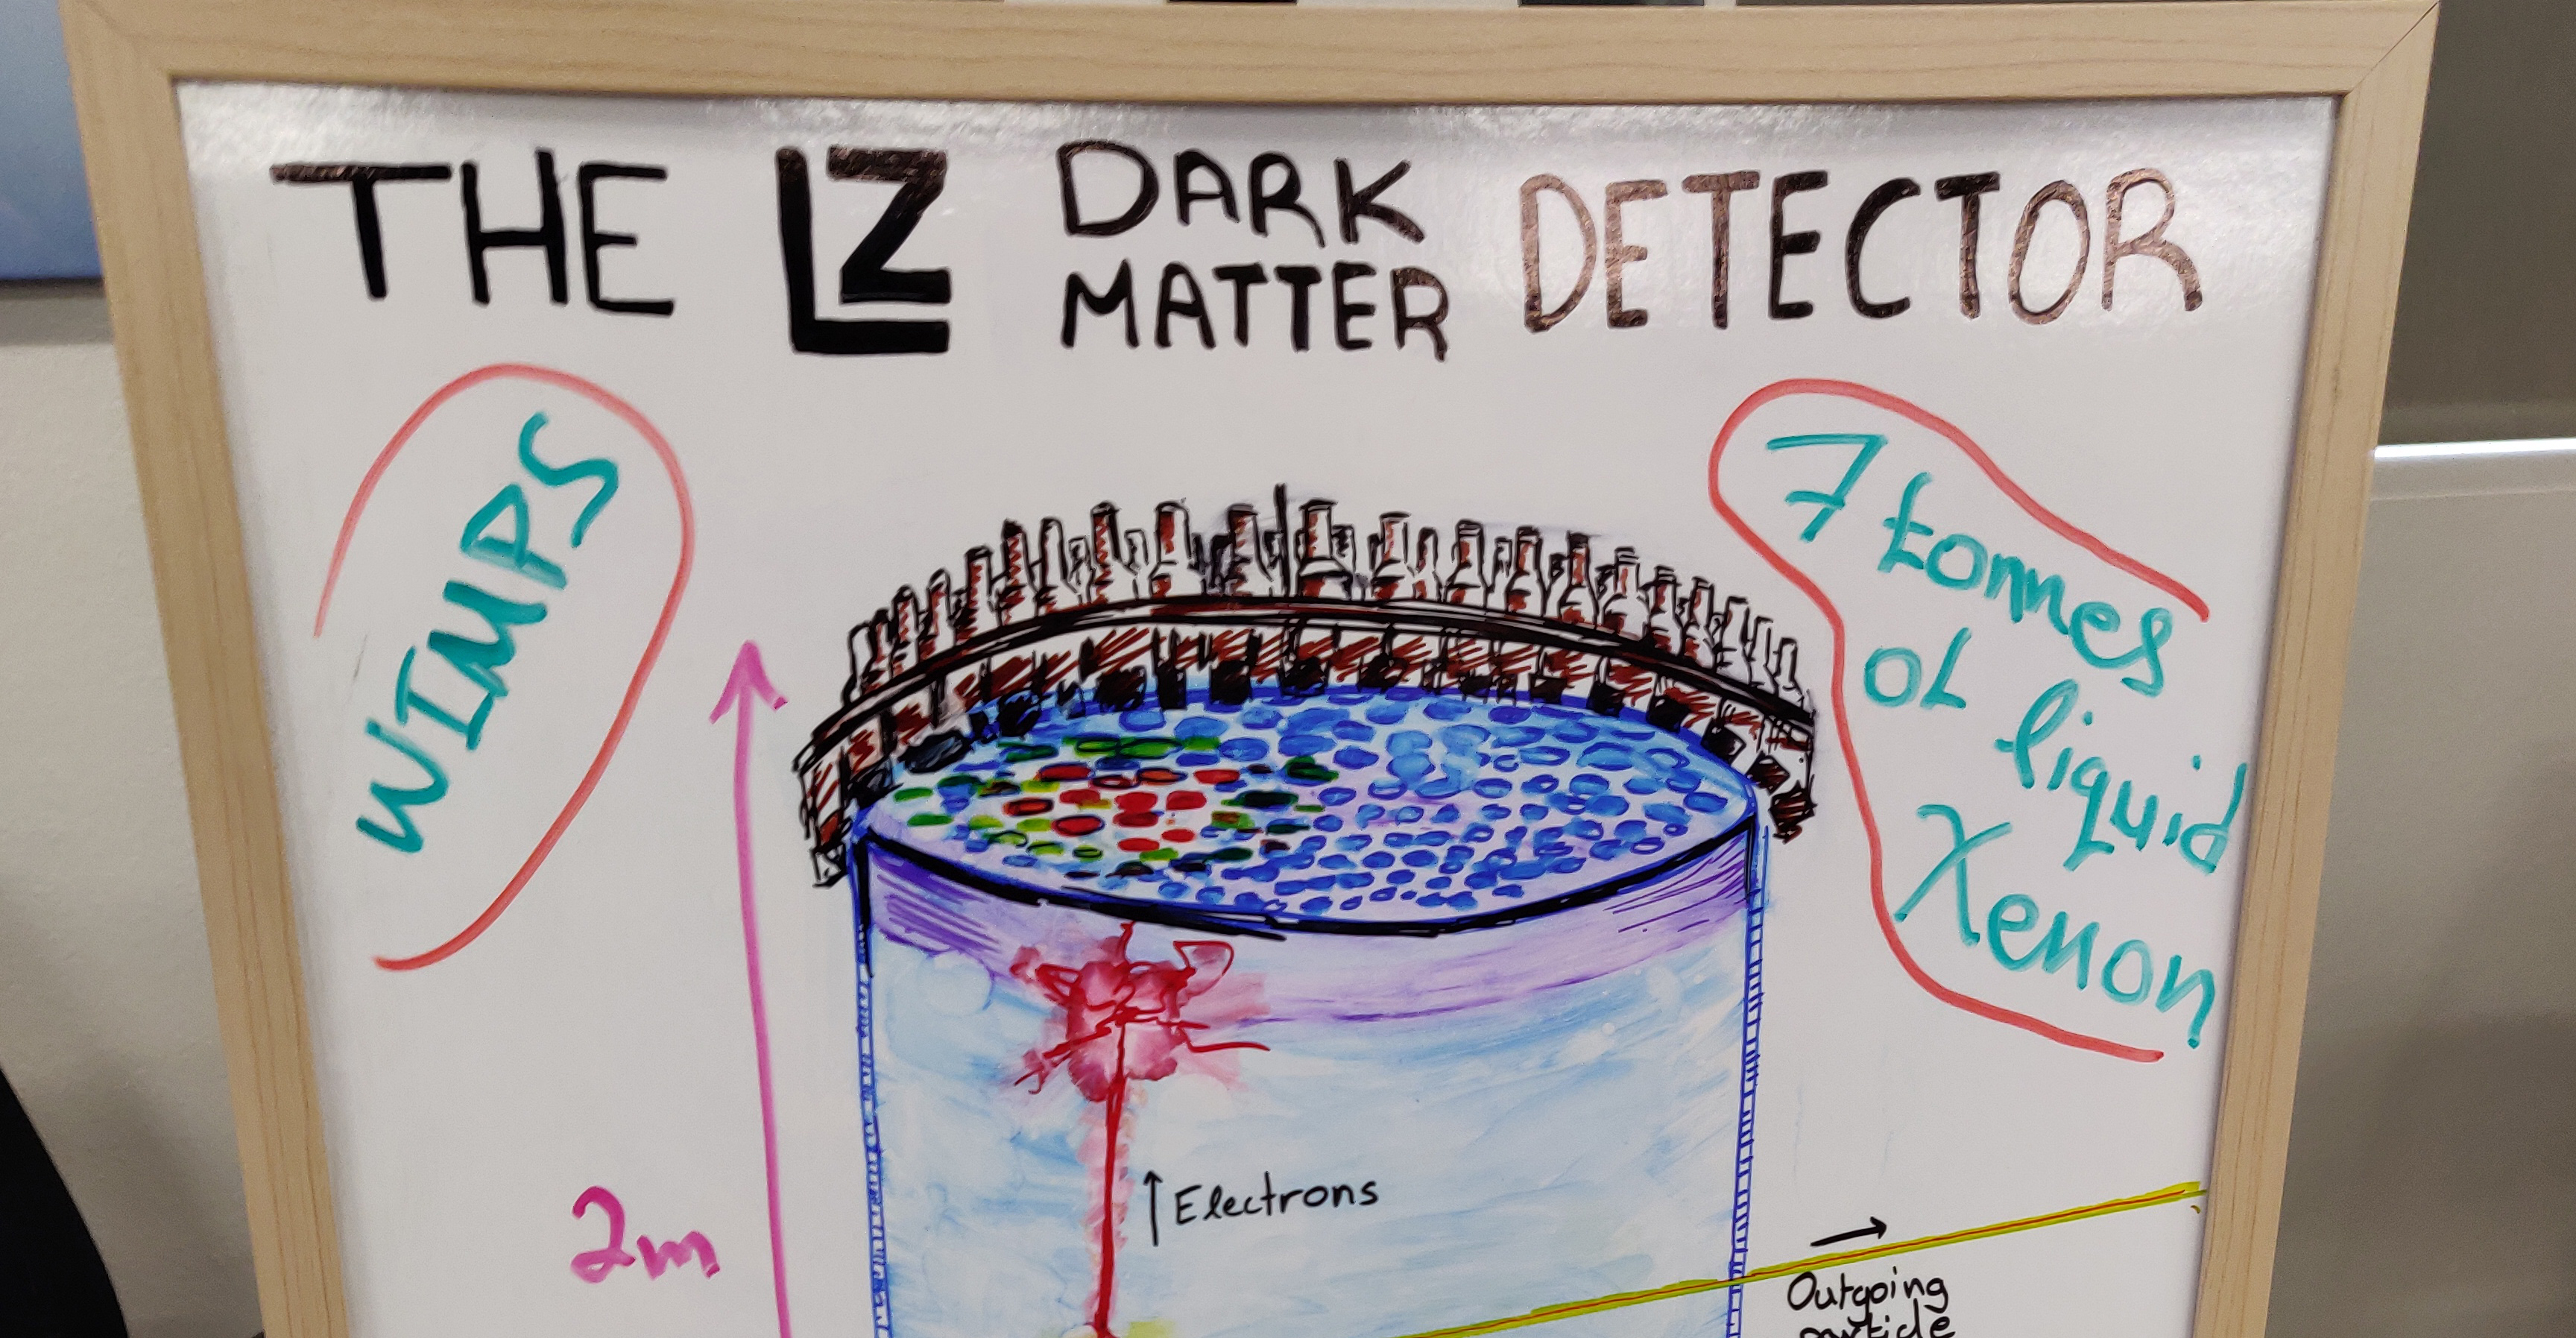 THE LZ DARK MATTER DETECTOR
WIMPS
7 tonnes
of liquid
Xenon
2m
↑ Electrons
Outgoing
particle